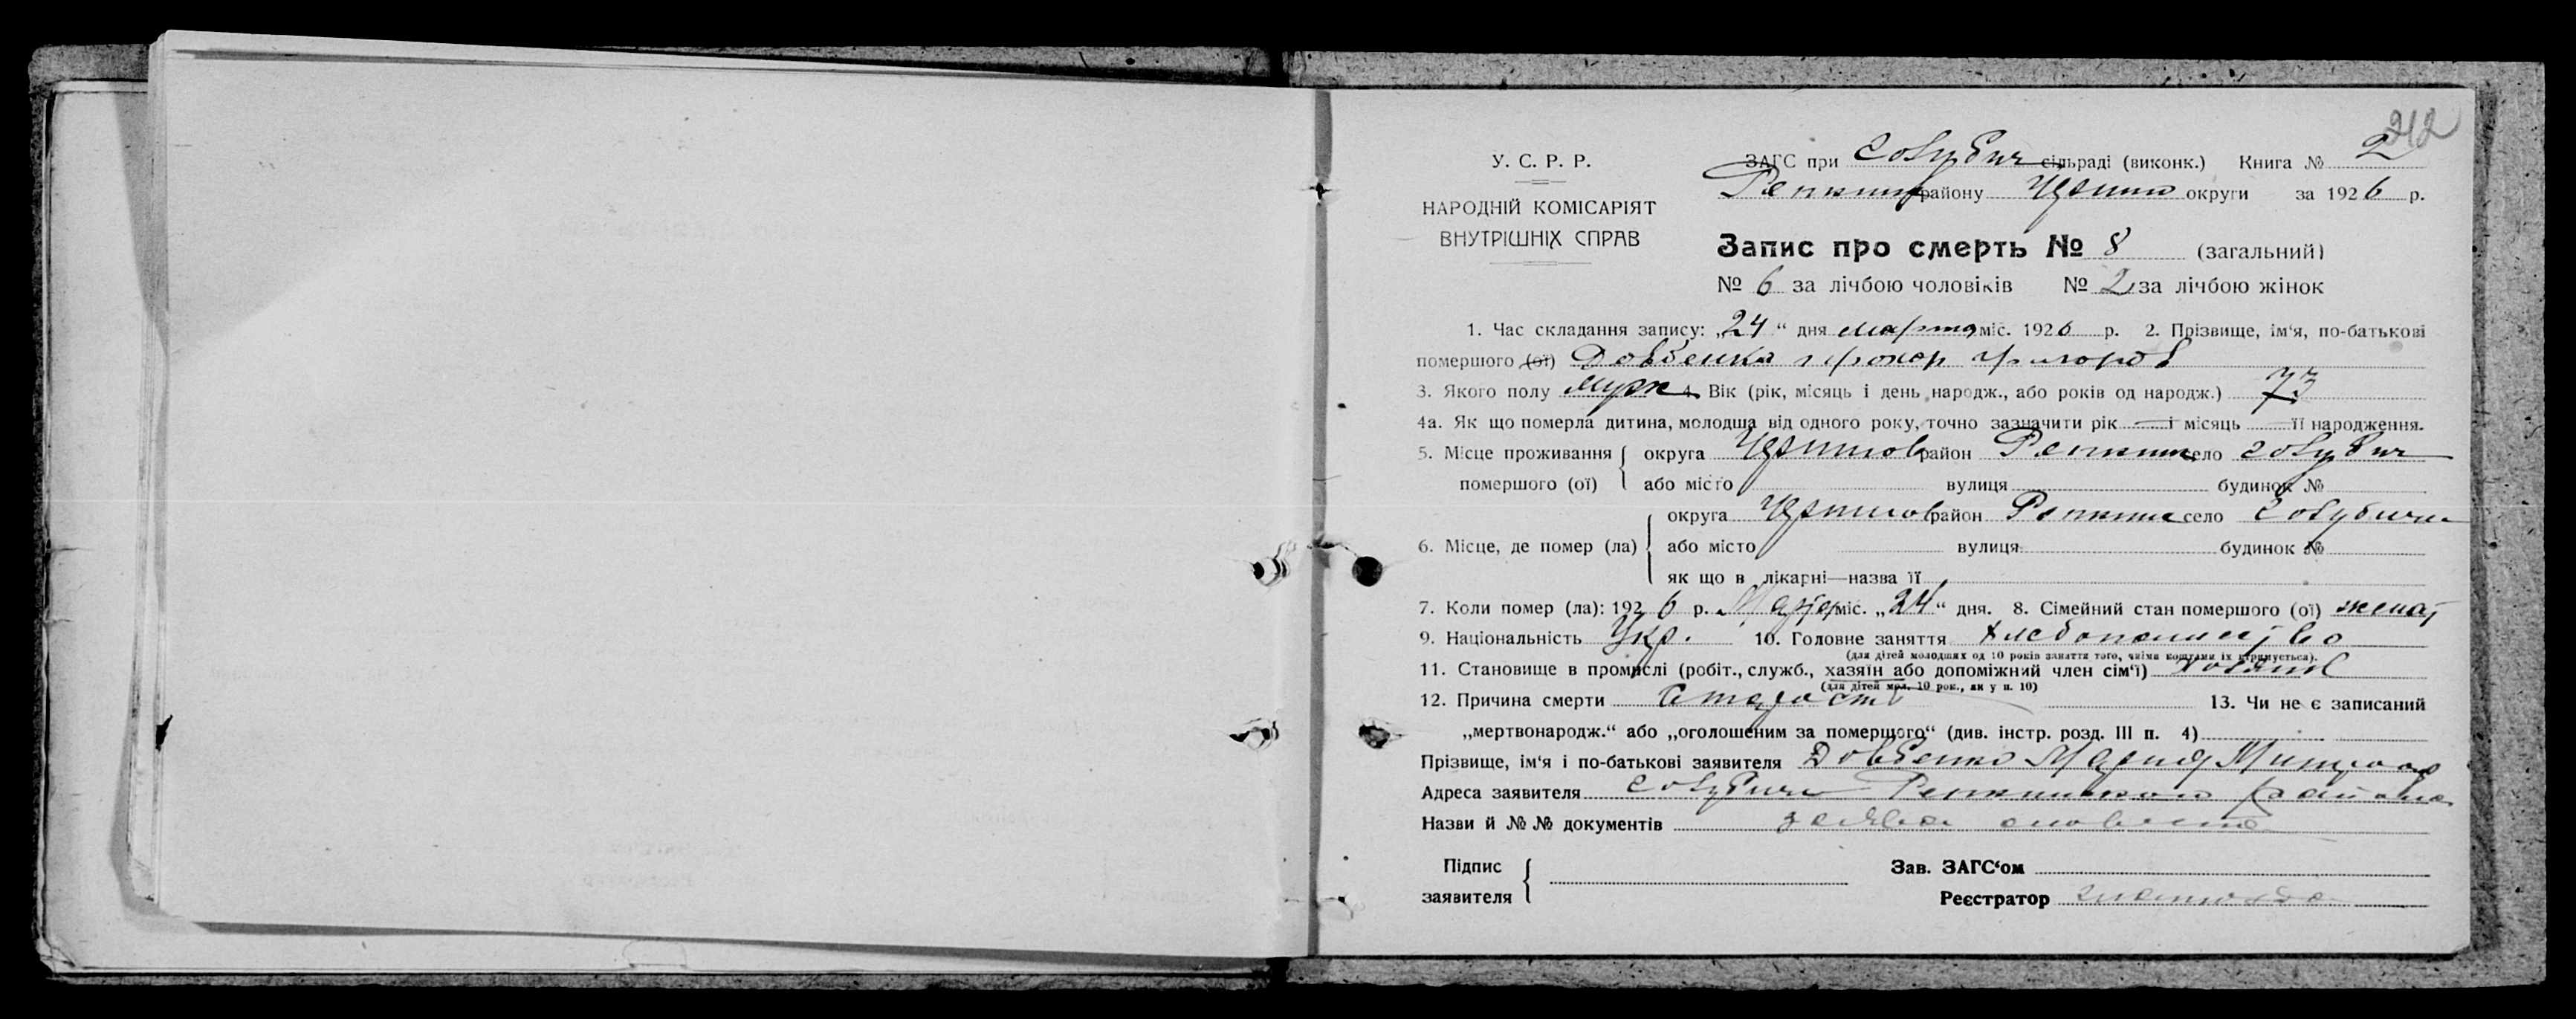 212
У. С. Р. Р.
НАРОДНІЙ КОМІСАРІЯТ
ВНУТРІШНІХ СПРАВ
ЗАГС при Голубич сільраді (виконк.) Книга № 2
Репкин району Черниг округи за 1926 р.
Запис про смерть № 8 (загальний)
№ 6 за лічбою чоловіків № 2 за лічбою жінок
1. Час складання запису: „24“ дня марта міс. 1926 р. 2. Прізвище, ім‘я, по-батькові
помершого (ої) Довбенко Прохор Григоров
3. Якого полу муж 4. Вік (рік, місяць і день народж., або років од народж.) 73
4а. Як що померла дитина, молодша від одного року, точно зазначити рік — і місяць — її народження.
5. Місце проживання помершого (ої) округа Чернигов район Репкин село Голубич
або місто вулиця будинок №
6. Місце, де помер (ла) округа Чернигов район Репкин село Голубичи
або місто вулиця будинок №
як що в лікарні—назва її
7. Коли помер (ла): 1926 р. Марта міс. „24“ дня. 8. Сімейний стан помершого (ої) женат
9. Національність Укр. 10. Головне заняття Хлебопашество
(для дітей молодших од 10 років заняття того, чиїми коштами їх утримується).
11. Становище в промислі (робіт., служб., хазяїн або допоміжний член сім‘ї) хозяин
(для дітей мол. 10 рок., як у п. 10)
12. Причина смерти Старость 13. Чи не є записаний
„мертвонародж.“ або „оголошеним за померщого“ (див. інстр. розд. III п. 4)
Прізвище, ім‘я і по-батькові заявителя Довбенко Мария
Адреса заявителя Голубичи Репкинского района
Назви й №№ документів заява
Підпис заявителя
Зав. ЗАГС‘ом
Реєстратор